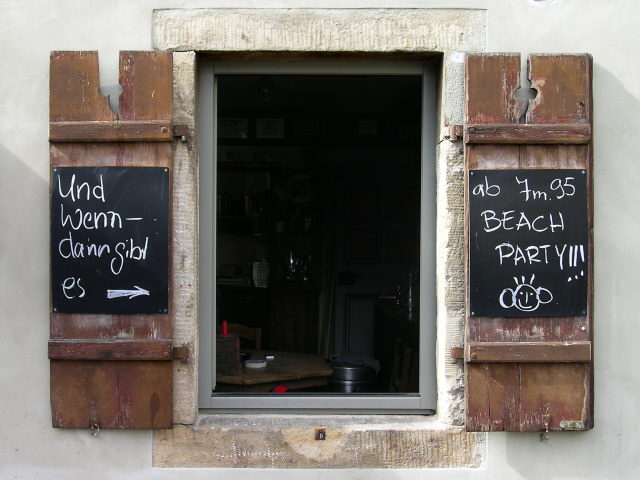 Und
wenn–
dann gibt
es →
ab 7m.95
BEACH
PARTY!!!